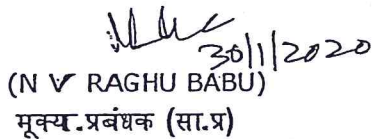 30/1/2020
(N V RAGHU BABU)
मूक्य.प्रबंधक (सा.प्र)